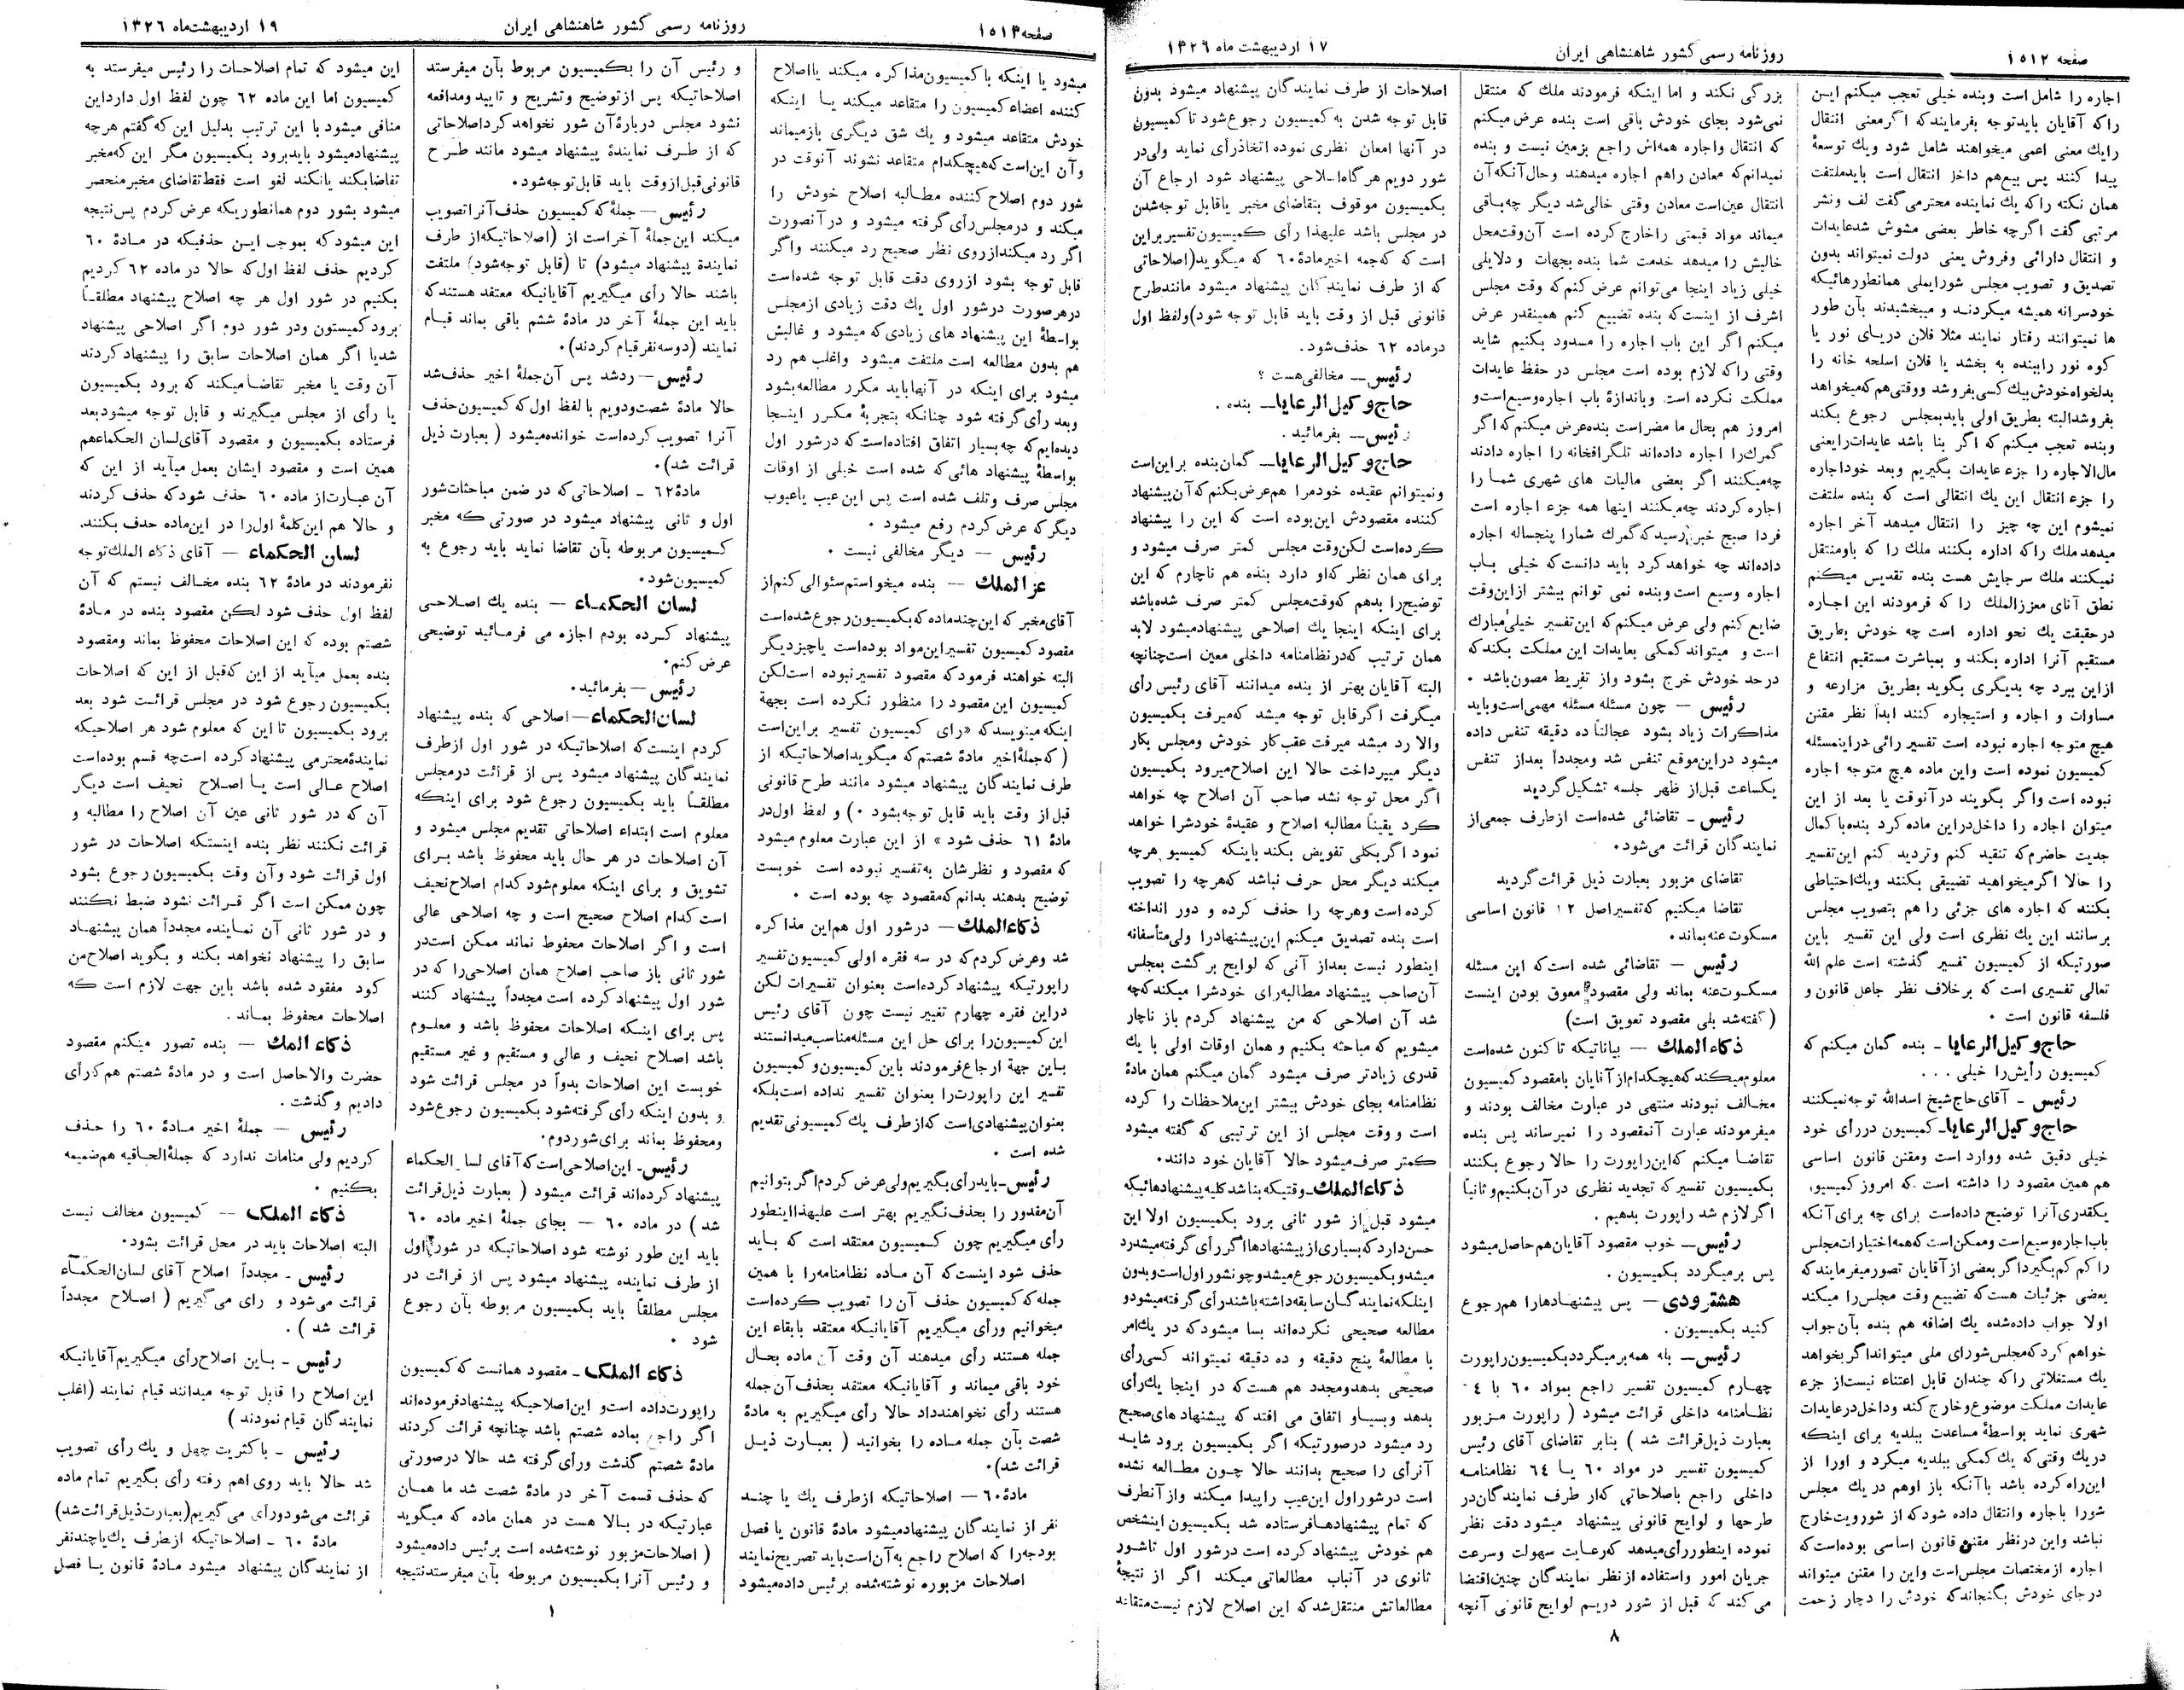 صفحه ۱۵۱۲
روزنامه رسمی کشور شاهنشاهی ایران
۱۷ اردیبهشت ماه ۱۳۲۶
اجاره را شامل است وبنده خیلی تعجب میکنم ایـن
راکه آقایان بایدتوجه بفرمایندکه اگرمعنی انتقال
رایك معنی اعمی میخواهند شامل شود ویك توسعهٔ
پیدا کنند پس بیع‌هم داخل انتقال است بایدملتفت
همان نکته راکه یك نماینده محترمی گفت لف ونشر
مرتبی گفت اگرچه خاطر بعضی مشوش شدعایدات
و انتقال دارائی وفروش یعنی دولت نمیتواند بدون
تصدیق و تصویب مجلس شورایملی همانطورهائیکه
خودسرانه همیشه میکردنـد و میبخشیدند بآن طور
ها نمیتوانند رفتار نمایند مثلا فلان دریـای نور یا
کوه نور رابنده به بخشد یا فلان اسلحه خانه را
بدلخواه‌خودش‌بیك‌کسی‌بفروشد ووقتی‌هم‌که‌میخواهد
بفروشدالبته بطریق اولی بایدبمجلس رجوع بکند
وبنده تعجب میکنم که اگر بنا باشد عایدات‌رایعنی
مال‌الاجاره را جزء عایدات بگیریم وبعد خوداجاره
را جزء انتقال این یك انتقالی است که بنده ملتفت
نمیشوم این چه چیز را انتقال میدهد آخر اجاره
میدهدملك راکه اداره بکنند ملك را که باومنتقل
نمیکنند ملك سرجایش هست بنده تقدیس میکنم
نطق آنای معززالملك را که فرمودند این اجـاره
درحقیقت یك نحو اداره است چه خودش بطریق
مستقیم آنرا اداره بکند و بمباشرت مستقیم انتفاع
ازاین ببرد چه بدیگری بگوید بطریق مزارعه و
مساوات و اجاره و استیجاره کنند ابداً نظر مقنن
هیچ متوجه اجاره نبوده است تفسیر رائی دراینمسئله
کمیسیون نموده است واین ماده هیچ متوجه اجاره
نبوده است واگر بگویند درآنوقت یا بعد از این
میتوان اجاره را داخل‌دراین ماده‌کرد بنده‌با کمال
جدیت حاضرم‌که تنقید کنم وتردید کنم این‌تفسیر
را حالا اگرمیخواهید تضییقی بکنند ویك‌احتیاطی
بکنند که اجاره های جزئی را هم بتصویب مجلس
برسانند این یك نظری است ولی این تفسیر باین
صورتیکه از کمیسیون تفسیر گذشته است علم الله
تعالی تفسیری است که برخلاف نظر جاعل قانون و
فلسفه قانون است ۰
حاج‌وکیل‌الرعایا - بنده گمان میکنم که
کمیسیون رأیش‌را خیلی . . .
رئیس - آقای‌حاج‌شیخ اسدالله توجه‌نمیکنند
حاج‌وکیل‌الرعایا - کمیسیون دررأی خود
خیلی دقیق شده ووارد است ومقنن قانون اساسی
هم همین مقصود را داشته است که امروز کمیسیون
یکقدری‌آنرا توضیح داده‌است برای چه برای‌آنکه
باب‌اجاره‌وسیع‌است‌وممکن‌است‌که‌همه‌اختیارات‌مجلس
راکم کم‌بگیرداگر بعضی‌از‌آقایان تصورمیفرمایندکه
بعضی جزئیات هست‌که تضییع وقت مجلس‌را میکند
اولا جواب داده‌شده یك اضافه هم بنده بآن‌جواب
خواهم کردکه‌مجلس‌شورای ملی میتوانداگر بخواهد
یك مستغلاتی راکه چندان قابل اعتناء نیست‌از جزء
عایدات مملکت موضوع‌وخارج کند وداخل‌درعایدات
شهری نماید بواسطهٔ مساعدت ببلدیه برای اینکه
دریك وقتی‌که یك کمکی ببلدیه میکرد و اورا از
این‌راه‌کرده باشد باآنکه باز اوهم دریك مجلس
شورا باجاره وانتقال داده شودکه از شورویت‌خارج
نباشد واین درنظر مقنن قانون اساسی بوده‌است‌که
اجاره ازمختصات مجلس‌است واین را مقنن میتواند
درجای خودش بگنجاندکه خودش را دچار زحمت
بزرگی نکند و اما اینکه فرمودند ملك که منتقل
نمی‌شود بجای خودش باقی است بنده عرض میکنم
که انتقال واجاره همه‌اش راجع بزمین نیست و بنده
نمیدانم‌که معادن راهم اجاره میدهند وحال‌آنکه‌آن
انتقال عین‌است معادن وقتی خالی‌شد دیگر چه‌باقی
میماند مواد قیمتی راخارج کرده است آن‌وقت‌محل
خالیش را میدهد خدمت شما بنده بجهات و دلایلی
خیلی زیاد اینجا می‌توانم عرض کنم‌که وقت مجلس
اشرف از اینست‌که بنده تضییع کنم همینقدر عرض
میکنم اگر این باب اجاره را مسدود بکنیم شاید
وقتی راکه لازم بوده است مجلس در حفظ عایدات
مملکت نکرده است وباندازهٔ باب اجاره‌وسیع‌است‌و
امروز هم بحال ما مضر‌است بنده‌عرض میکنم‌که اگر
گمرك‌را اجاره داده‌اند تلگرافخانه را اجاره دادند
چه‌میکنند اگر بعضی مالیات های شهری شمـا را
اجاره کردند چه‌میکنند اینها همه جزء اجاره است
فردا صبح خبر رسیدکه گمرك شمارا پنجساله اجاره
داده‌اند چه خواهدکرد باید دانست‌که خیلی بـاب
اجاره وسیع است وبنده نمی توانم بیشتر ازاین‌وقت
ضایع کنم ولی عرض میکنم‌که این‌تفسیر خیلی‌مبارك
است و میتواندکمکی بعایدات این مملکت بکندکه
درحد خودش خرج بشود واز تفریط مصون‌باشد ۰
رئیس — چون مسئله مسئله مهمی‌است‌وباید
مذاکرات زیاد بشود عجالتاً ده دقیقه تنفس داده
میشود دراین‌موقع تنفس شد ومجدداً بعداز تنفس
یکساعت قبل‌از ظهر جلسه تشکیل‌گردید
رئیس - تقاضائی شده‌است ازطرف جمعی‌از
نمایندگان قرائت می‌شود۰
تقاضای مزبور بعبارت ذیل قرائت‌گردید
تقاضا میکنیم که‌تفسیراصل ۱۲ قانون اساسی
مسکوت عنه‌بماند۰
رئیس — تقاضائی شده است‌که این مسئله
مسکـوت‌عنه بماند ولی مقصود معوق بودن اینست
( گفته‌شد بلی مقصود تعویق است)
ذکاءالملك — بیاناتیکه تاکنون شده‌است
معلوم‌میکندکه‌هیچکدام‌از‌آنایان بامقصود کمیسیون
مخـالف نبودند منتهی در عبارت مخالف بودند و
میفرمودند عبارت آنمقصود را نمیرساند پس بنده
تقاضـا میکنم که‌این‌راپورت را حالا رجوع بکنند
بکمیسیون تفسیرکه تجدید نظری در‌آن‌بکنیم‌و ثانیاً
اگر لازم شد راپورت بدهیم .
رئیس— خوب مقصود آقایان‌هم‌حاصل‌میشود
پس برمیگردد بکمیسیون .
هشترودی — پس پیشنهـادهارا هم‌رجوع
کنید بکمیسیون .
رئیس— بله همه‌برمیگرددبکمیسیون‌راپورت
چهـارم کمیسیون تفسیر راجع بمواد ۶۰ با
نظـامنامه داخلی قرائت میشود ( راپورت مـزبور
بعبارت ذیل‌قرائت شد ) بنابر تقاضای آقای رئیس
کمیسیون تفسیر در مواد ۶۰ یـا ۶۴ نظامنامـه
داخلی راجع باصلاحاتی که‌از طرف نمایندگان‌در
طرحها و لوایح قانونی پیشنهاد میشود دقت نظر
نموده اینطوررأی‌میدهد که‌رعـایت سهولت وسرعت
جریان امور واستفاده ازنظر نمایندگان چنین‌اقتضا
می‌کند که قبل از شور دویـم لوایح قانونی آنچه
اصلاحات از طرف نمایندگان پیشنهاد میشود بدون
قابل توجه شدن به کمیسیون رجوع‌شود تا کمیسیون
در آنها امعان نظری نموده اتخاذرأی نماید ولی‌در
شور دویم هرگاه‌اصلاحی پیشنهاد شود ارجاع آن
بکمیسیون موقوف بتقاضای مخبر یاقابل توجه‌شدن
در مجلس باشد علیهذا رأی کمیسیون‌تفسیربراین
است که که‌جمه اخیرمادهٔ۶۰ که میگوید(اصلاحاتی
که از طرف نمایندگان پیشنهاد میشود مانندطرح
قانونی قبل از وقت باید قابل توجه شود)ولفظ اول
درماده ۶۲ حذف‌شود.
رئیس— مخالفی‌هست ؟
حاج‌وکیل‌الرعایا— بنده .
رئیس— بفرمائید .
حاج‌وکیل‌الرعایا— گمان‌بنده براین‌است
ونمیتوانم عقیده خودمرا هم‌عرض‌بکنم‌که‌آن‌پیشنهاد
کننده مقصودش این‌بوده است که این را پیشنهاد
کرده‌است لکن‌وقت مجلس کمتر صرف میشود و
برای همان نظر که‌او دارد بنده هم ناچارم که این
توضیح‌را بدهم که‌وقت‌مجلس کمتر صرف شده‌باشد
برای اینکه اینجا یك اصلاحی پیشنهادمیشود لابد
همان ترتیب که‌در‌نظامنامه داخلی معین است‌چنانچه
البته آقایان بهتر از بنده میدانند آقای رئیس رأی
میگرفت اگرقابل توجه میشد که‌میرفت بکمیسیون
والا رد میشد میرفت عقب‌کار خودش ومجلس بکار
دیگر میپرداخت حالا این اصلاح‌میرود بکمیسیون
اگر محل توجه نشد صاحب آن اصلاح چه خواهد
کـرد یقیناً مطالبه اصلاح و عقیدهٔ خودشرا خواهد
نمود اگربکلی تفویض بکند باینکه کمیسیون هرچه
میکند دیگر محل حرف نباشد که‌هرچه را تصویب
کرده است وهرچه را حذف کرده و دور انداخته
است بنده تصدیق میکنم این‌پیشنهادرا ولی‌متأسفانه
اینطور نیست بعداز آنی که لوایح برگشت بمجلس
آن‌صاحب پیشنهاد مطالبه‌رای خودشرا میکندکه‌چه
شد آن اصلاحی که من پیشنهاد کردم باز ناچار
میشویم که مباحثه بکنیم و همان اوقات اولی با یك
قدری زیادتر صرف میشود گمان میگنم همان مادهٔ
نظامنامه بجای خودش بیشتر این‌ملاحظات را کرده
است و وقت مجلس از این ترتیبی که گفته میشود
کمتر صرف‌میشود حالا آقایان خود دانند۰
ذکاءالملك—وقتیکه‌بناشد‌کلیه‌پیشنهادهائیکه
میشود قبل‌از شور ثانی برود بکمیسیون اولا این
حسن‌داردکه‌بسیاری‌ازپیشنهادهااگررأی‌گرفته‌میشدرد
میشدوبکمیسیون‌رجوع‌میشدوچون‌شوراول‌است‌وبدون
اینکه‌نمایندگـان‌سابقه‌داشته‌باشندرأی‌گرفته‌میشودو
مطالعه صحیحی نکرده‌اند بسا میشودکه در یك‌امر
با مطالعهٔ پنج دقیقه و ده دقیقه نمیتواند کسی‌رأی
صحیحی بدهدومجدد هم هست‌که در اینجا یك‌رأی
بدهد وبسیاو اتفاق می افتد که پیشنهاد های‌صحیح
رد میشود درصورتیکه اگر بکمیسیون برود شایـد
آنرأی را صحیح بدانند حالا چـون مطـالعه نشده
است درشوراول این‌عیب راپیدا میکند وازآنطرف
که تمام پیشنهادهـافرستاده شد بکمیسیون اینشخص
هم خودش پیشنهاد کرده است درشور اول تاشـور
ثانوی در آنباب مطالعاتی میکند اگر از نتیجهٔ
مطالعاتش منتقل‌شدکه این اصلاح لازم نیست‌متقاعد
۸
صفحه۱۵۱۳
روزنامه رسمی کشور شاهنشاهی ایران
۱۹ اردیبهشت‌ماه ۱۳۲۶
میشود یا اینکه باکمیسیون‌مذاکره میکند یااصلاح
کننده اعضاءکمیسیون را متقاعد میکند یـا اینکه
خودش متقاعد میشود و یك شق دیگری بازمیماند
وآن این‌است که‌هیچکدام متقاعد نشوند آنوقت در
شور دوم اصلاح کننده مطـالبه اصلاح خودش را
میکند و درمجلس‌رأی گرفته میشود و در‌آنصورت
اگر رد میکندازروی نظر صحیح رد میکنند واگر
قابل توجه بشود ازروی دقت قابل توجه شده‌است
درهرصورت درشور اول یك دقت زیادی ازمجلس
بواسطهٔ این پیشنهاد های زیادی‌که میشود و غالبش
هم بدون مطالعه است ملتفت میشود واغلب هم رد
میشود برای اینکه در آنهاباید مکرر مطالعه‌بشود
وبعد رأی‌گرفته شود چنانکه بتجربهٔ مکـرر اینـجا
دیده‌ایم‌که چه‌بسیار اتفاق افتاده‌است‌که درشور اول
بواسطهٔ پیشنهاد هائی‌که شده است خیلی از اوقات
مجلس صرف وتلف شده است پس این عیب یاعیوب
دیگرکه عرض کردم رفع میشود ۰
رئیس — دیگر مخالفی نیست ۰
عزالملك — بنده میخواستم‌سئوالی کنم‌از
آقای‌مخبرکه این‌چندماده‌که‌بکمیسیون‌رجوع‌شده‌است
مقصودکمیسیون تفسیراین‌مواد بوده‌است یاچیزدیگر
البته خواهند فرمودکه مقصود تفسیر‌نبوده است‌لکن
کمیسیون این‌مقصود را منظور نکرده است بجهة
اینکه مینویسدکه «رای کمیسیون تفسیر براین‌است
( که‌جملهٔ‌اخیر مادهٔ شصتم‌که میگویداصلاحاتیکه از
طرف نمایندگان پیشنهاد میشود مانند طرح قانونی
قبل‌از وقت باید قابل توجه‌بشود ۰) و لفظ اول‌در
مادهٔ ۶۱ حذف شود» از این عبارت معلوم میشود
که مقصود و نظرشان به‌تفسیر نبوده است خوبست
توضیح بدهند بدانم‌که‌مقصود چه بوده است ۰
ذکاءالملك — درشور اول هم‌این مذاکره
شد وعرض کردم‌که در سه فقره اولی کمیسیون‌تفسیر
راپورتیکه پیشنهاد کرده‌است بعنوان تفسیرات لکن
دراین فقره چهارم تغییر نیست چون آقای رئیس
این کمیسیون‌را برای حل این مسئله‌مناسب‌میدانستند
بـاین جهة ارجاع‌فرمودند باین کمیسیون‌وکمیسیون
تفسیر این راپورت‌را بعنوان تفسیر نداده است‌بلکه
بعنوان‌پیشنهادی‌است که‌ازطرف یك کمیسیونی تقدیم
شده است ۰
رئیس—بایدرأی‌بگیریم‌ولی‌عرض کردم‌اگربتوانیم
آن‌مقدور را بحذف‌نگیریم بهتر است علیهذااینطور
رأی میگیریم چون کـمیسیون معتقد است که بـاید
حذف شود اینست‌که آن مـاده نظامنامه‌را با همین
جمله‌که‌کمیسیون حذف آن‌را تصویب کرده‌است
میخوانیم ورأی میگیریم آقایانیکه معتقد بابقاء این
جمله هستند رأی میدهند آن وقت آن ماده بحـال
خود باقی میماند و آقایانیکه معتقد بحذف‌آن‌جمله
هستند رأی نخواهندداد حالا رأی میگیریم به مادهٔ
شصت بآن جمله مـاده را بخوانید ( بعبـارت ذیـل
قرائت شد)۰
مادهٔ۶۰ — اصلاحاتیکه ازطرف یك یا چنـد
نفر از نمایندگان پیشنهادمیشود مادهٔ قانون یا فصل
بودجه‌را که اصلاح راجع به‌آن‌است‌باید تصریح‌نمایند
اصلاحات مزبوره نوشته‌شده برئیس داده‌میشود
و رئیس آن را بکمیسیون مربوط بآن میفرستد
اصلاحاتیکه پس ازتوضیح وتشریح و تایید ومدافعه
نشود مجلس دربارهٔ‌آن شور نخواهدکرداصلاحاتی
که از طـرف نمایندهٔ پیشنهاد میشود مانند طـرح
قانونی‌قبل‌از‌وقت باید قابل‌توجه‌شود۰
رئیس — جملهٔ که کمیسیون حذف‌آنراتصویب
میکند این‌جملهٔ آخراست از (اصلاحاتیکه‌از طرف
نماینده پیشنهاد میشود) تا (قابل توجه‌شود) ملتفت
باشند حالا رأی میگیریم آقایانیکه معتقد هستندکه
باید این جملهٔ آخر در مادهٔ ششم باقی بماند قیـام
نمایند (دوسه‌نفرقیام‌کردند)۰
رئیس —ردشد پس آن‌جملهٔ اخیر حذف‌شد
حالا مادهٔ شصت‌ودویم با لفظ اول‌که کمیسیون‌حذف
آنرا تصویب کرده‌است خوانده‌میشود ( بعبارت ذیل
قرائت شد)۰
مادهٔ۶۲ - اصلاحاتی‌که در ضمن مباحثات‌شور
اول و ثانی پیشنهاد میشود در صورتی که مخبر
کمیسیون مربوطه بآن تقاضا نماید باید رجوع به
کمیسیون‌شود۰
لسان الحکمـاء — بنده یك اصـلاحـی
پیشنهاد کـرده بودم اجازه می فرمـائید توضیحی
عرض کنم۰
رئیس —بفرمائید۰
لسان‌الحکماء—اصلاحی که بنده پیشنهاد
کردم اینست‌که اصلاحاتیکه در شور اول ازطرف
نمایندگان پیشنهاد میشود پس از قرائت در‌مجلس
مطلقـاً باید بکمیسیون رجوع شود برای اینکه
معلوم است ابتداء اصلاحاتی تقدیم مجلس میشود و
آن اصلاحات در هر حال باید محفوظ باشد بـرای
تشویق و برای اینکه معلوم‌شود کدام اصلاح‌نحیف
است کدام اصلاح صحیح است و چه اصلاحی عالی
است و اگر اصلاحات محفوط نماند ممکن است‌در
شور ثانی باز صاحب اصلاح همان اصلاحی‌را که در
شور اول پیشنهاد کرده است مجدداً پیشنهاد کنند
پس برای اینکه اصلاحات محفوظ باشد و معلـوم
باشد اصلاح نحیف و عالی و مستقیم و غیر مستقیم
خوبست این اصلاحات بدواً در مجلس قرائت شود
و بدون اینکه رأی گرفته‌شود بکمیسیون رجوع‌شود
ومحفوظ بماند برای‌شوردوم۰
رئیس- این‌اصلاحی‌است‌که آقای لسان‌الحکماء
پیشنهاد کرده‌اند قرائت میشود ( بعبارت ذیل‌قرائت
شد ) در ماده ۶۰ — بجای جملهٔ اخیر ماده ۶۰
باید این طور نوشته شود اصلاحاتیکه در شور اول
از طرف نماینده پیشنهاد میشود پس از قرائت در
مجلس مطلقاً باید بکمیسیون مربوطه بآن رجوع
شود ۰
ذکاء الملك - مقصود همانست که کمیسیون
راپورت‌داده است‌و این‌اصلاحیکه پیشنهادفرموده‌اند
اگر راجع بماده شصتم باشد چنانچه قرائت کردند
مادهٔ شصتم گذشت ورأی‌گرفته شد حالا درصورتی
که حذف قسمت آخر در مادهٔ شصت شد ما همـان
عبارتیکه در بـالا هست در همان ماده که میگوید
( اصلاحات‌مزبور نوشته‌شده است برئیس داده‌میشود
و رئیس آنرا بکمیسیون مربوطه بآن میفرستدنتیجه
این میشود که تمام اصلاحات را رئیس میفرستد به
کمیسیون اما این ماده ۶۲ چون لفظ اول دارداین
منافی میشود با این ترتیب بدلیل این که گفتم هرچه
پیشنهادمیشود بایدبرود بکمیسیون مگر این که‌مخبر
تقاضابکند یانکند لغو است فقط‌تقاضای مخبرمنحصر
میشود بشور دوم همانطوریکه عرض کردم پس‌نتیجه
این میشودکه بموجب ایـن حذفیکه در مـادهٔ ۶۰
کردیم حذف لفظ اول‌که حالا در ماده ۶۲ کردیم
بکنیم در شور اول هر چه اصلاح پیشنهاد مطلقـاً
برودکمیستون ودر شور دوم اگر اصلاحی پیشنهاد
شدیا اگر همان اصلاحات سابق را پیشنهادکردند
آن وقت یا مخبر تقاضـا میکند که برود بکمیسیون
یا رأی از مجلس میگیرند و قابل توجه میشودبعد
فرستاده بکمیسیون و مقصود آقای‌لسان الحکماءهم
همین است و مقصود ایشان بعمل میآید از این که
آن عبارت‌از ماده ۶۰ حذف شودکه حذف کردند
و حالا هم این‌کلمهٔ اول‌را در این‌ماده حدف بکنند.
لسان الحکماء — آقای ذکاء الملك‌توجه
نفرمودند در مادهٔ ۶۲ بنده مخـالف نیستم که آن
لفظ اول حذف شود لکن مقصود بنده در مـادهٔ
شصتم بوده که این اصلاحات محفوظ بماند ومقصود
بنده بعمل میآید از این که‌قبل از این که اصلاحات
بکمیسیون رجوع شود در مجلس قرائـت شود بعد
برود بکمیسیون تا این که معلوم شود هر اصلاحیکه
نمایندهٔ‌محترمی پیشنهاد کرده است‌چه قسم بوده‌است
اصلاح عـالی است یـا اصـلاح نحیف است دیگر
آن که در شور ثانی عین آن اصلاح را مطالبه و
قرائت نکنند نظر بنده اینستکه اصلاحات در شور
اول قرائت شود وآن وقت بکمیسیون رجوع بشود
چون ممکن است اگر قـرائت نشود ضبط نکنند
و در شور ثانی آن نمـاینده مجدداً همان پیشنهـاد
سابق را پیشنهاد نخواهد بکند و بگوید اصلاح‌من
کود مفقود شده باشد باین جهت لازم است که
اصلاحات محفوظ بمـاند .
ذکاء الملك — بنده تصور میکنم مقصود
حضرت والاحاصل است و در مادهٔ شصتم هم که‌رأی
دادیم وگذشت .
رئیس — جملهٔ اخیر مـادهٔ ۶۰ را حـذف
کردیم ولی منامات ندارد که جملهٔ‌الحاقیه هم‌ضمیمه
بکنیم ۰
ذکاء الملك — کمیسیون مخالف نیست
البته اصلاحات باید در محل قرائت بشود۰
رئیس - مجدداً اصلاح آقای لسان‌الحکمـاء
قرائت می‌شود و رای می‌گیریم ( اصـلاح مجدداً
قرائت شد ) .
رئیس - بـاین اصلاح‌رأی میگیریم‌آقایانیکه
این اصلاح را قابل توجه میدانند قیام نمایند (اغلب
نمایندگان قیام نمودند )
رئیس - باکثریت چهل و یك رأی تصویب
شد حالا باید روی اهم رفته رأی بگیریم تمام ماده
قرائت می‌شودورأی می گیریم(بعبارت‌ذیل‌قرائت‌شد)
مادهٔ ۶۰ - اصلاحاتیکه ازطرف یك‌یاچندنفر
از نمایندگان پیشنهاد میشود مـادهٔ قانون یـا فصل
۱